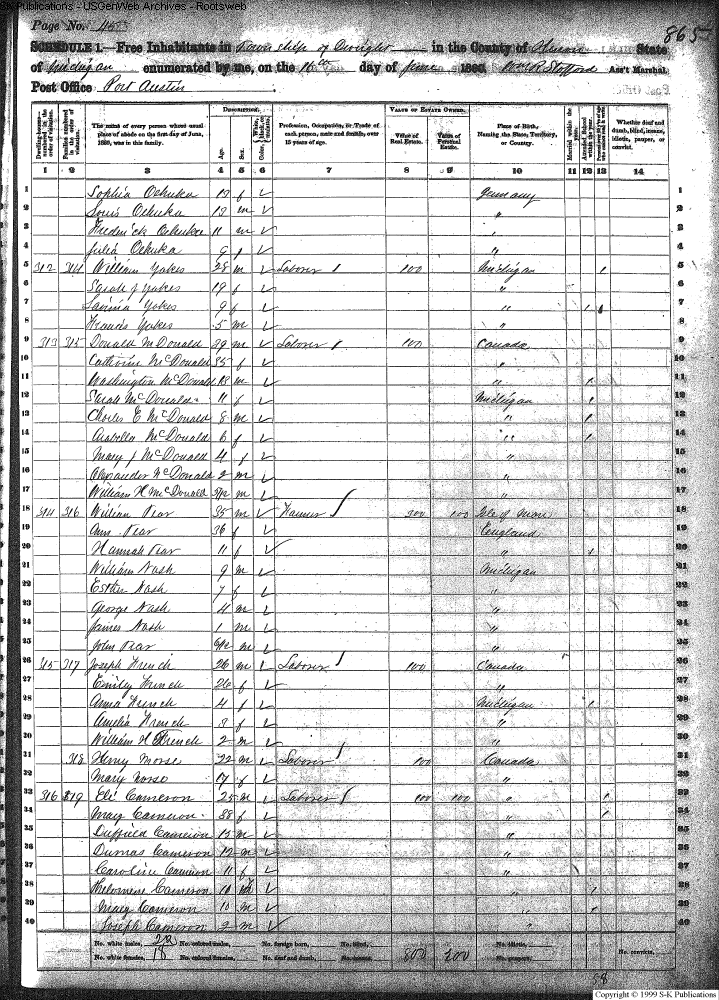 S-K Publications - USGenWeb Archives - Rootsweb
Page No. 115
865
SCHEDULE 1.—Free Inhabitants in Township of Dwight in the County of Huron State
of Michigan enumerated by me, on the 16th day of June 1860. Wm R Stafford Ass't Marshal.
Post Office Port Austin
Dwelling-houses— numbered in the order of visitation.
Families numbered in the order of visitation.
The name of every person whose usual place of abode on the first day of June, 1860, was in this family.
DESCRIPTION.
Age.
Sex.
Color, White, black, or mulatto.
Profession, Occupation, or Trade of each person, male and female, over 15 years of age.
VALUE OF ESTATE OWNED.
Value of Real Estate.
Value of Personal Estate.
Place of Birth, Naming the State, Territory, or Country.
Married within the year.
Attended School within the year.
Whether deaf and dumb, blind, insane, idiotic, pauper, or convict.
1 2 3 4 5 6 7 8 9 10 11 12 13 14
1 Sophia Ochuka 13 f ✓ Germany 1
2 Louis Ochuka 13 m ✓ " 2
3 Frederick Ochuka 11 m ✓ " 3
4 Julia Ochuka 9 f ✓ " 4
5 312 314 William Yakes 28 m ✓ Laborer 1 100 Michigan 1 5
6 Sarah J Yakes 19 f ✓ " 6
7 Lavinia Yakes 9 f ✓ " 1 1 7
8 Francis Yakes 5 m ✓ " 8
9 313 315 Donald McDonald 39 m ✓ Laborer 1 100 Canada 9
10 Catherine McDonald 35 f ✓ " 10
11 Washington McDonald 13 m ✓ " 1 11
12 Sarah McDonald 11 f ✓ Michigan 1 12
13 Charles E McDonald 8 m ✓ " 1 13
14 Arabella McDonald 6 f ✓ " 1 14
15 Mary J McDonald 4 f ✓ " 15
16 Alexander McDonald 2 m ✓ " 16
17 William H McDonald m ✓ " 17
18 314 316 William Pear 35 m ✓ Farmer 300 100 Isle of Man 18
19 Ann Pear 36 f ✓ England 19
20 Hannah Pear 11 f ✓ " 1 20
21 William Nash 9 m ✓ Michigan 21
22 Esther Nash 7 f ✓ " 22
23 George Nash 4 m ✓ " 23
24 James Nash 1 m ✓ " 24
25 John Pear 6/12 m ✓ " 25
26 315 317 Joseph French 26 m Laborer 1 100 Canada 26
27 Emily French 26 f ✓ " 27
28 Anna French 4 f ✓ Michigan 1 28
29 Amelia French 3 f ✓ " 29
30 William H French 2 m ✓ " 30
31 318 Henry Morse 22 m ✓ Laborer 100 Canada 31
32 Mary Morse 17 f ✓ " 32
33 316 319 Eli Cameron 25 m ✓ Laborer 100 100 " 1 33
34 Mary Cameron 38 f ✓ " 1 34
35 Cameron 15 m ✓ " 35
36 Dumas Cameron 12 m ✓ " 36
37 Caroline Cameron 11 f ✓ " 37
38 Philomene Cameron 10 ✓ " 1 38
39 Mary Cameron 10 m ✓ " 1 39
40 Joseph Cameron 2 m ✓ " 40
No. white males, 22 No. colored males, No. foreign born, No. blind, No. idiotic,
No. white females, 18 No. colored females, No. deaf and dumb, No. insane, 800 200 No. paupers, No. convicts,
58
Copyright © 1999 S-K Publications